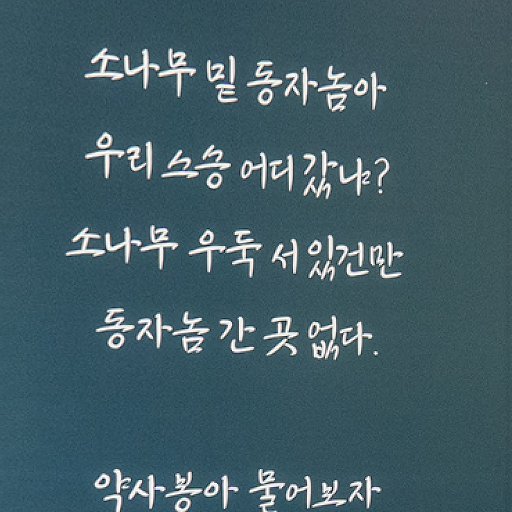 소나무 밑 동자놈아
우리 스승 어디 갔냐?
소나무 우둑 서 있건만
동자놈 간 곳 없다.
약사봉아 물어보자